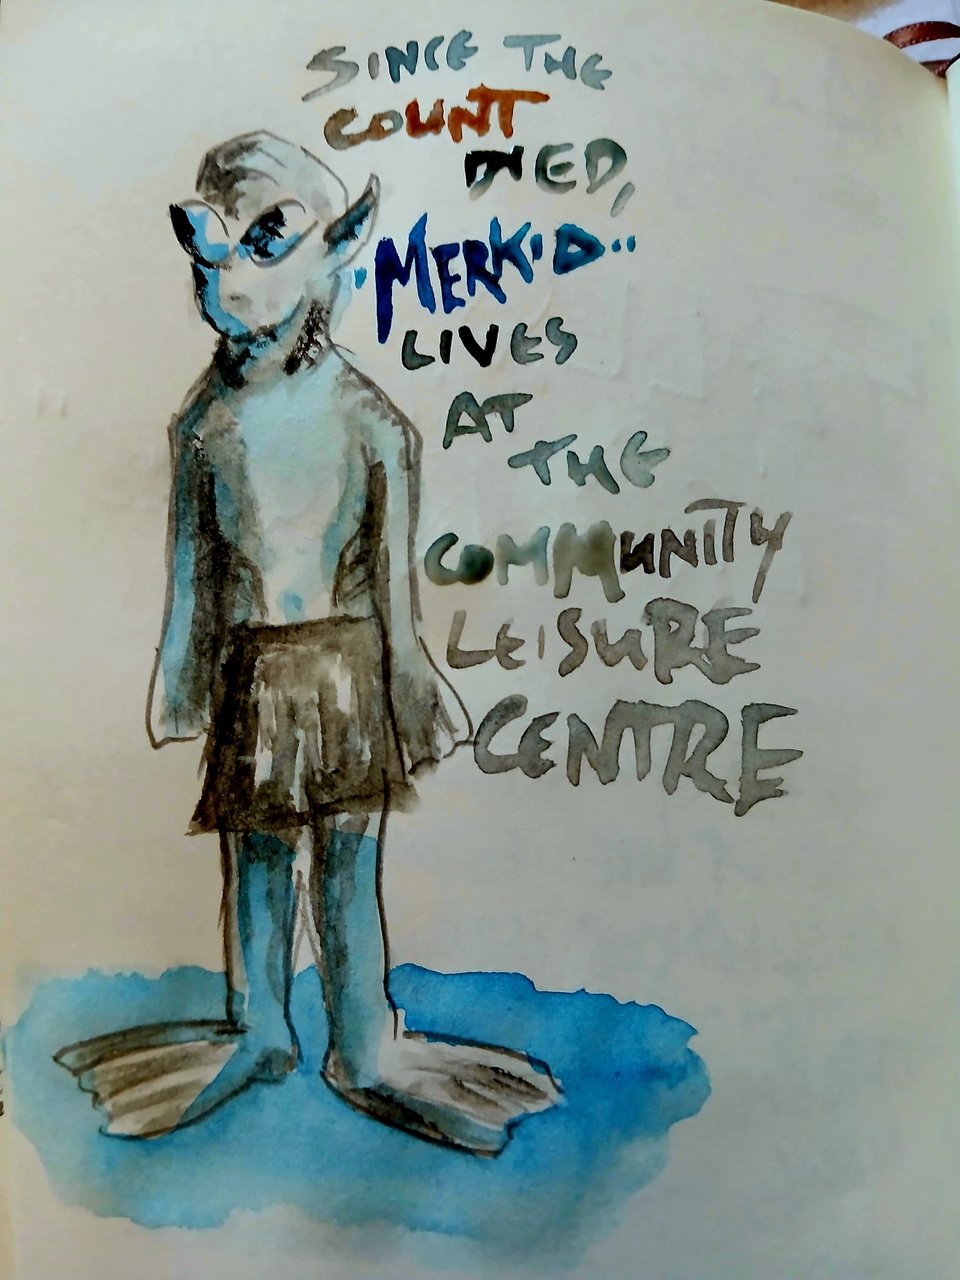 SINCE THE
COUNT
DIED,
"MERKID"
LIVES
AT
THE
COMMUNITY
LEISURE
CENTRE